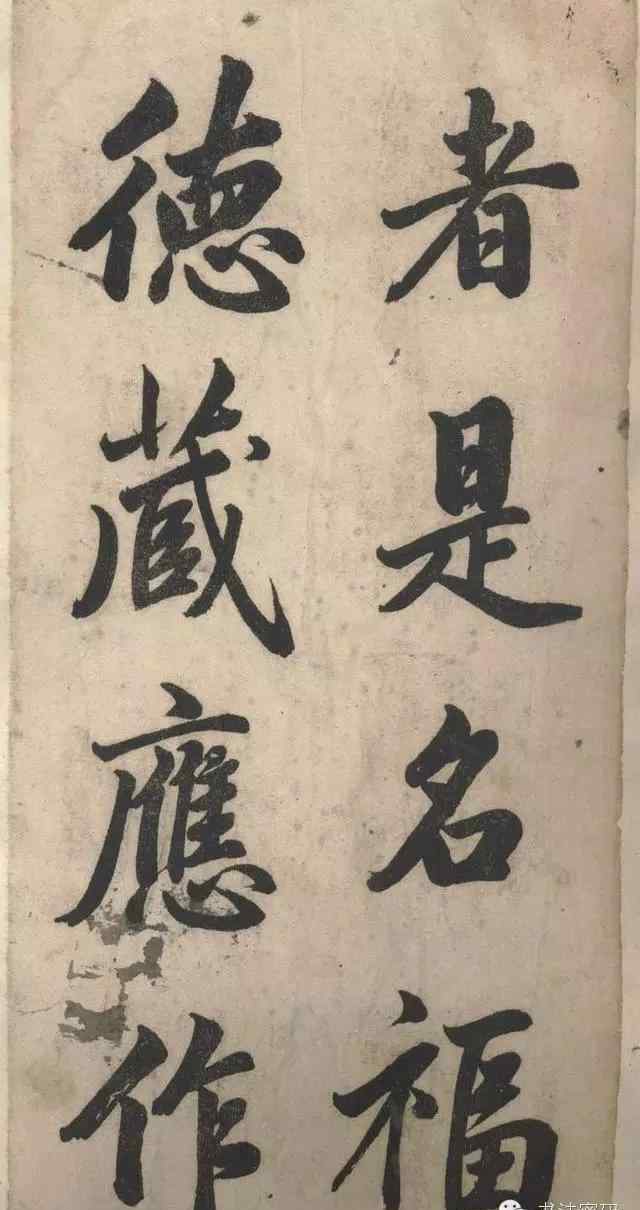 者是名福
德藏應作
书法密码